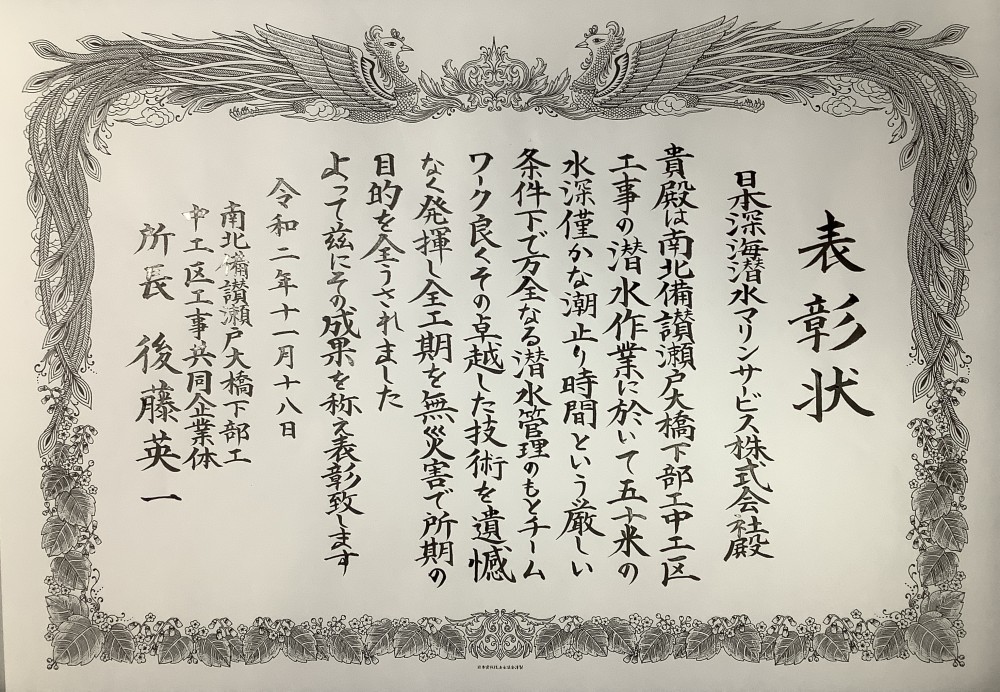 表彰状
日本深海潜水マリンサービス株式会社殿
貴殿は南北備讃瀬戸大橋下部工中工区
工事の潜水作業に於いて五十米の
水深僅かな潮止り時間という厳しい
条件下で万全なる潜水管理のもとチーム
ワーク良くその卓越した技術を遺憾
なく発揮し全工期を無災害で所期の
目的を全うされました
よって茲にその成果を称え表彰致します
令和二年十一月十八日
南北備讃瀬戸大橋下部工
中工区工事共同企業体
所長 後藤英一